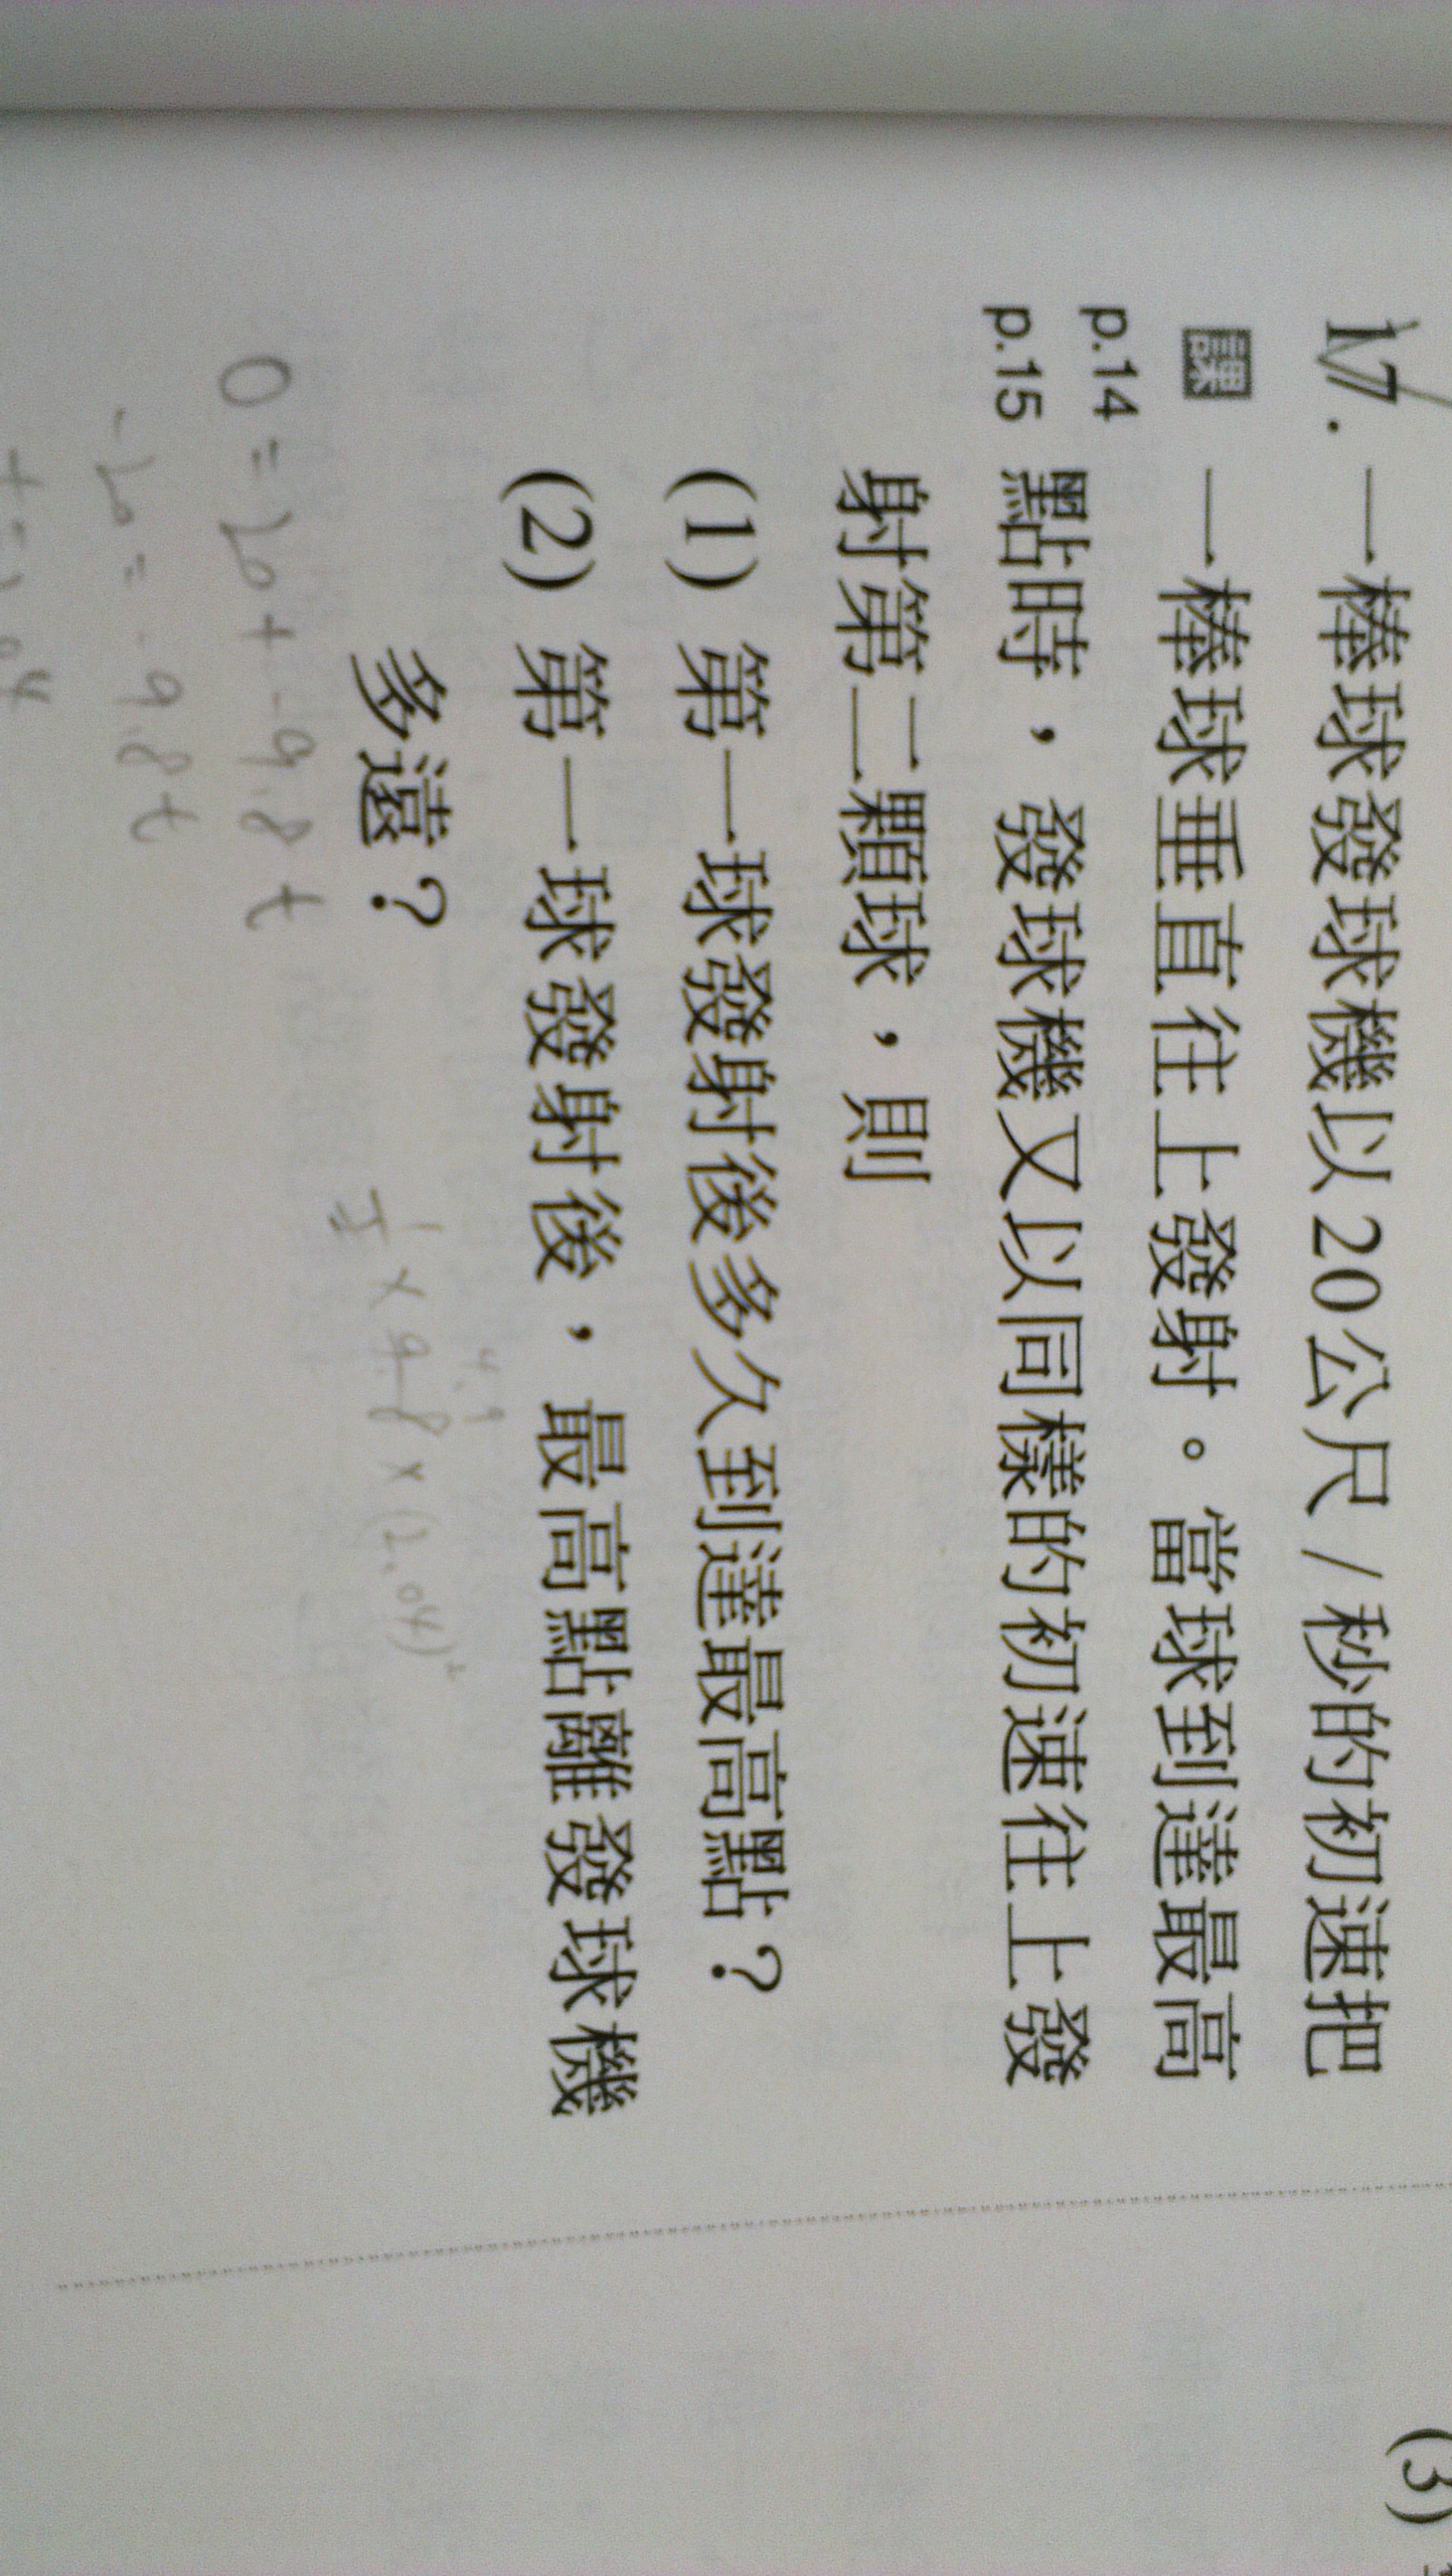 17. 一棒球發球機以20公尺/秒的初速把
課 一棒球垂直往上發射。當球到達最高
p.14
p.15 點時，發球機又以同樣的初速往上發
射第二顆球，則
(1) 第一球發射後多久到達最高點？
(2) 第一球發射後，最高點離發球機
多遠？
4.9
½ × 9.8 × (2.04)²
0 = 20 + -9.8 t
-20 = -9.8 t
(3)